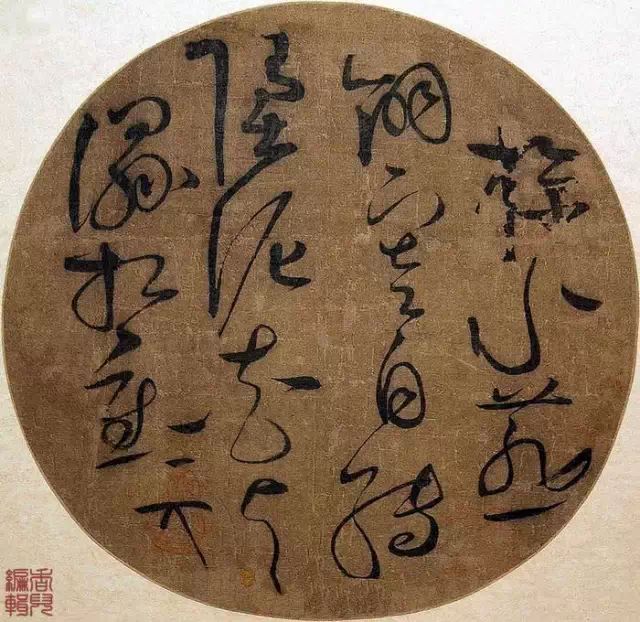 掠水燕
翎寒自轉
墮泥花片
濕相重
編輯